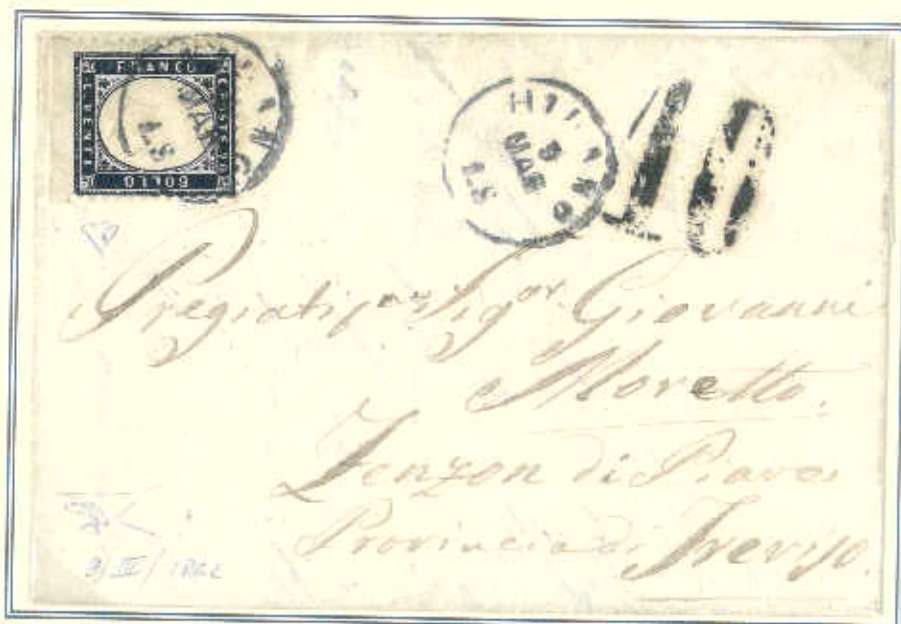 FRANCO
C. VENTI
BOLLO
MILANO
9
MAR
MILANO
9
MAR
Pregiatis.mo Sig.or Giovanni
Moretto.
Zenzon di Piave
Provincia di Treviso.
9/III/1862